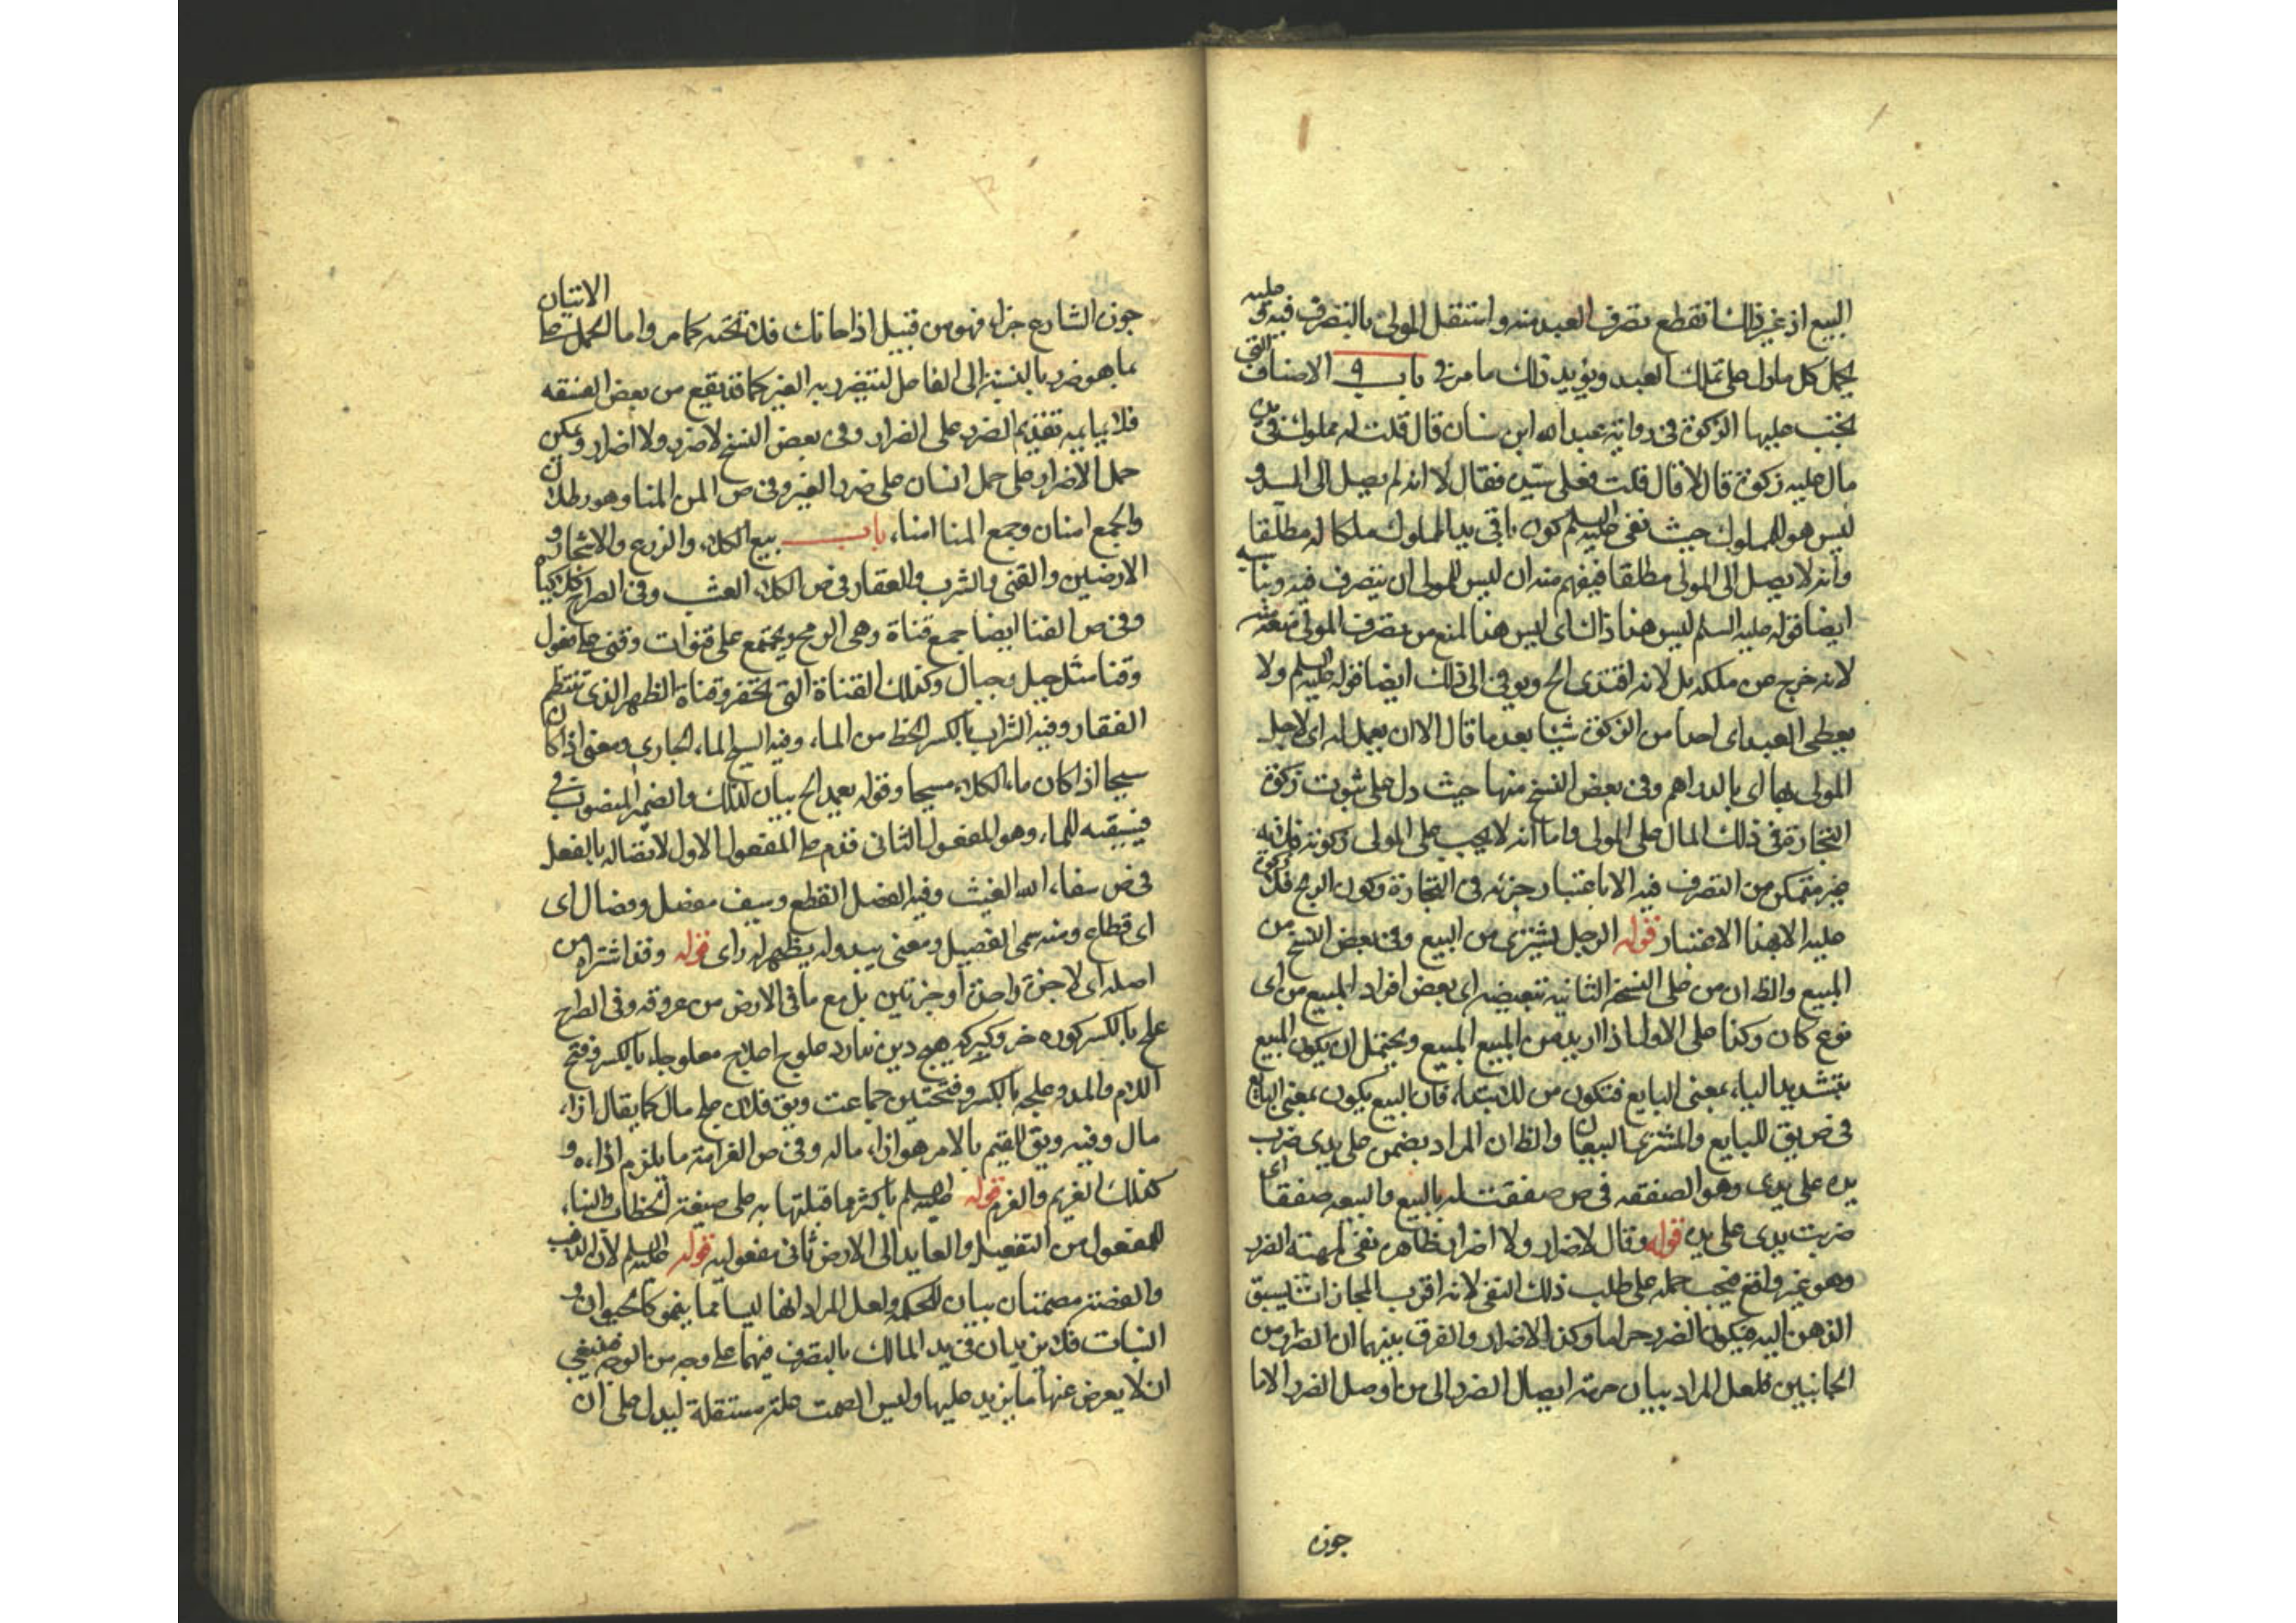 البيع اذ غير ذلك انقطع تصرف العبد منه واستقل المولى بالتصرف فيه و عليه
يحمل كل ما دل على تملك العبد ويؤيد ذلك ما مر في باب ٩ الاصناف التي
تجب عليها الزكوة في رواية عبد الله ابن سنان قال قلت له مملوك في يده
مال عليه زكوة قال لا قال قلت فعلى سيده فقال لا انه لم يصل الى السيد و
ليس هو للمملوك حيث نفى عليه السلم كون ما في يد المملوك ملكا له مطلقا
وانه لا يصل الى المولى مطلقا فيفهم منه ان ليس للمولى ان يتصرف فيه
ايضا قوله عليه السلم ليس هذا ذاك اي ليس هذا المنع من تصرف المولى
لانه خرج من ملكه بل لانه افتدى الخ ويومي الى ذلك ايضا قوله عليه السلم ولا
يعطى العبد اي احدا من الزكوة شيئا بعد ما قال الا ان يعمل له اي لاجل
المولى بها اي بالدراهم وفي بعض النسخ منها حيث دل على ثبوت زكوة
التجارة في ذلك المال على المولى واما انه لا يجب على المولى زكوته فلانه
غير متمكن من التصرف فيه الا باعتبار جزئه في التجارة وكون الربح فلا زكوة
عليه الا بهذا الاعتبار قوله الرجل يشترى من البيع وفي بعض النسخ من
المبيع والظ ان من على النسخة الثانية تبعيضية اي بعض افراد المبيع من اي
نوع كان وكذا على الاول اذا اريد من البيع المبيع ويحتمل ان يكون البيع
بتشديد الياء بمعنى البايع فتكون من للابتداء فان البيع يكون بمعنى البايع
في ص يق للبايع والمشترى البيعان والظ ان المراد بضمن على يدى ضرب
يده على يدى وهو الصفقة في ص صفقت له بالبيع والبيعه صفقا اي
ضربت يدى على يده قوله وقال لا ضرار ولا اضرار ظاهره نفى مهية الضرر
وهو غير واقع فيجب حمله على طلب ذلك النفى لانه اقرب المجازات يسبق
الذهن اليه فيكون الضرر حراما وكذا الاضرار والفرق بينهما ان الضرار من
الجانبين فلعل المراد بيان حرمة ايصال الضرر الى من اوصل الضرر الا ما
جوز
جوز الشارع جزاء فهو من قبيل اذا خانك فلا تخنه كما مر واما الحمل على الاتيان
بما هو ضرر بالنسبة الى الفاعل ليتضرر به الغير كما قد يقع من بعض الفسقه
فلا يلايمه تقديم الضرر على الضرار وفي بعض النسخ لا ضرر ولا اضرار ويمكن
حمل الاضرار على حمل انسان على ضرر الغير وفي ص المن المنا وهو رطلان
والجمع امنان وجمع المنا امناء باب بيع الكلاء والزرع والاشجار و
الارضين والقنى والشرب والعقار في ص الكلاء العشب وفي الصراح كلا كياه
وفي ص القنا ايضا جمع قناة وهى الرمح ويجمع على قنوات وقنى على فعول
وقنا مثل جبل وجبال وكذلك القناة التي تحفر وقناة الظهر الذى تنتظم
الفقار وفيه الشراب بالكسر الحظ من الماء وفيه السيح الماء الجارى ومعنى اذا كان
سيحا اذا كان ماء الكلاء سيحا وقوله يعمد الخ بيان لذلك والضمير المنصوب في
فيسقيه للماء وهو المفعول الثاني قدم على المفعول الاول لاتصاله بالفعل
في ص سقاء الله الغيث وفيه الفصل القطع وسيف مفصل وفصال اي
اي قطاع ومنه سمى الفصيل ومعنى يبدوله يظهر له راى قوله وقد اشتراه من
اصله اي لا جزة واحدة او جزتين بل مع ما في الارض من عروقه وفي الصراح
علج بالكسر كوره خر وكبر كه هيج دين ندارد علوج اعلاج معلوجاء بالكسر وفتح
اللام والمد وعلجه بالكسر وفتحتين جماعت ويق فلان علج مال كما يقال ازاء
مال وفيه ويق للقيم بالامر هو ازاء ماله وفي ص الغرامة ما يلزم اداءه و
كذلك الغريم والغرم قوله عليه السلم باكثر ما قبلتها به على صيغة الخطاب والبناء
للمفعول من التفعيل والعايد الى الارض ثاني مفعوليه قوله عليه السلم لان الذهب
والفضة مصمتان بيان للحكمة ولعل المراد انهما ليسا مما ينمو كالحيوان و
النبات فلا يزيدان في يد المالك بالتصرف فيهما على وجه من الوجوه فينبغي
ان لا يعرض عنها ما يزيد عليها وليس الصمت علة مستقلة ليدل على ان